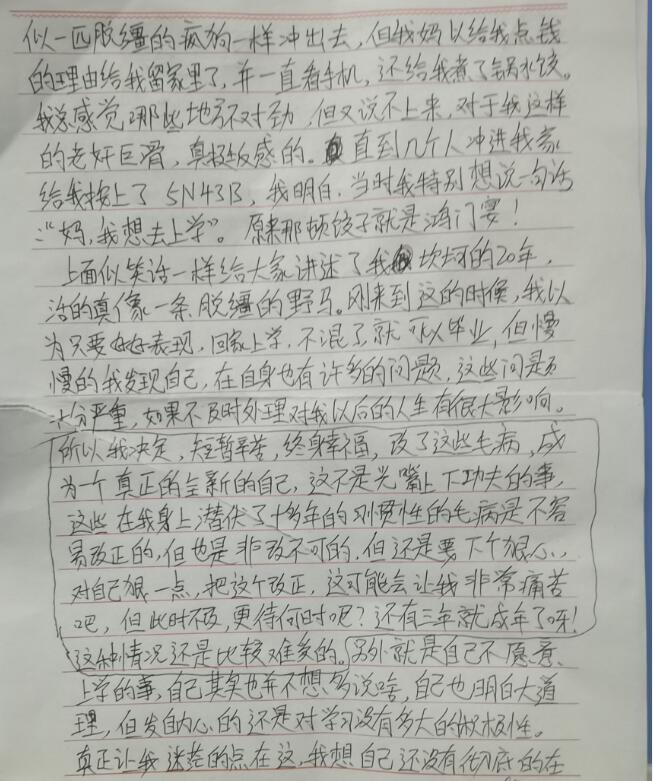 似一匹脱缰的疯狗一样冲出去，但我妈以给我点钱
的理由给我留家里了，并一直看手机，还给我煮了锅水饺。
我总感觉哪些地方不对劲，但又说不上来，对于我这样
的老奸巨滑，真挺反感的。直到几个人冲进我家
给我按上了 SN4313，我明白，当时我特别想说一句话
：“妈，我想去上学”。原来那顿饺子就是鸿门宴！
上面似笑话一样给大家讲述了我坎坷的20年，
活的真像一条脱缰的野马。刚来到这的时候，我以
为只要好好表现，回家上学，不混了就可以毕业，但慢
慢的我发现自己，在自身也有许多的问题，这些问题
十分严重，如果不及时处理对我以后的人生有很大影响。
所以我决定，短暂辛苦，终身幸福，改了这些毛病，成
为一个真正的全新的自己，这不是光嘴上下功夫的事，
这些在我身上潜伏了十多年的刚惯性的毛病是不容
易改正的，但也是非改不可的，但还是要下个狠心，
对自己狠一点，把这个改正，这可能会让我非常痛苦
吧，但此时不及，更待何时呢？还有三年就成年了呀！
这种情况还是比较难多的。另外就是自己不愿意
上学的事，自己其实也并不想多说啥，自己也明白大道
理，但发自内心的还是对学习没有多大的积极性。
真正让我迷茫的点在这，我想自己还没有彻底的在